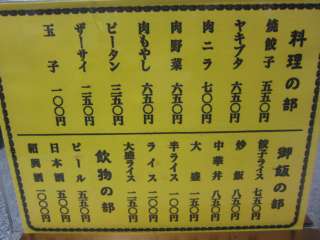 料理の部
焼餃子 五五〇円
ヤキブタ 六五〇円
肉ニラ 七〇〇円
肉野菜 六五〇円
肉もやし 六五〇円
ピータン 三五〇円
ザーサイ 二五〇円
玉子 一〇〇円
御飯の部
餃子ライス 七五〇円
炒飯 八五〇円
中華丼 八五〇円
大盛 一五〇円
半ライス 一〇〇円
ライス 二〇〇円
大盛ライス 二五〇円
飲物の部
ビール 五五〇円
日本酒 五〇〇円
紹興酒 一〇〇〇円